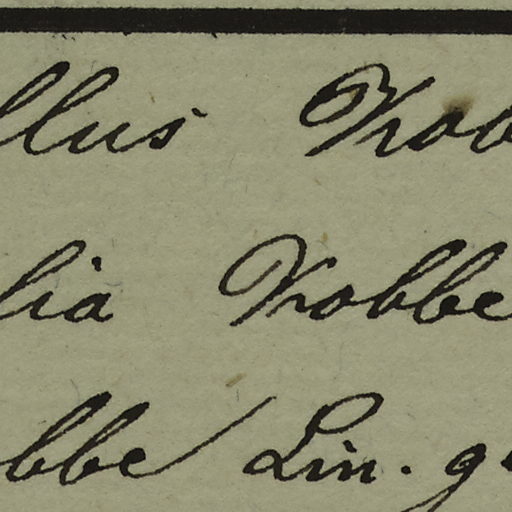 llus Krob
lia Krobbe
bbe Lin. g